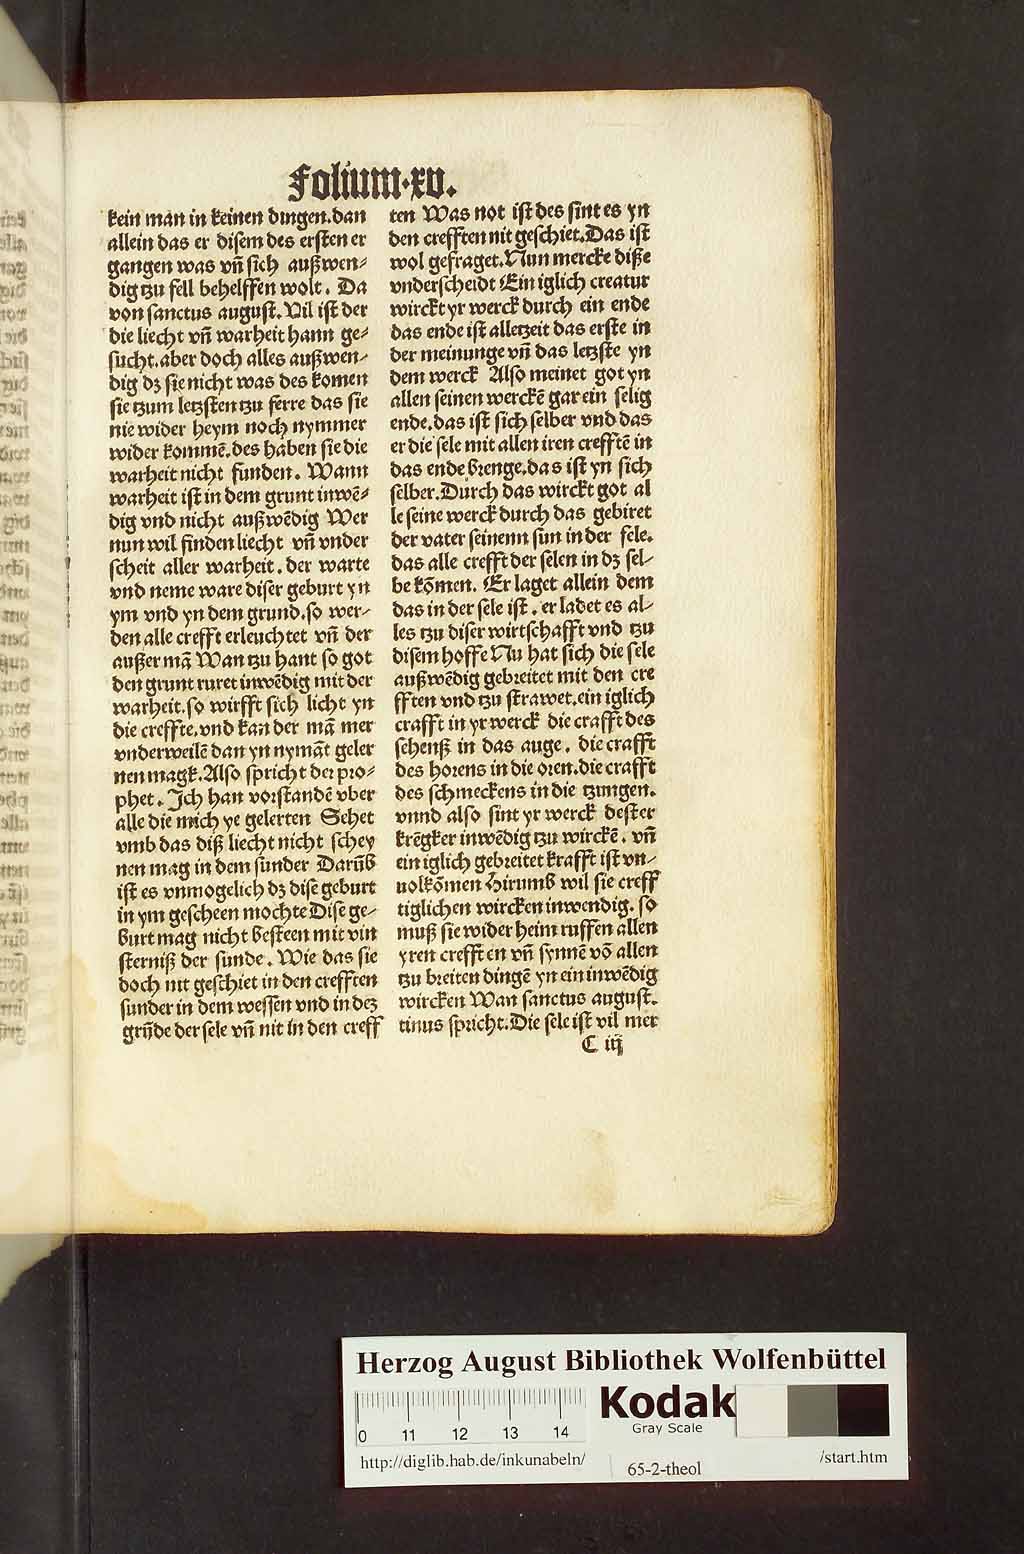 Folium·xv.
kein man in keinen dingen.dan
allein das er disem des ersten er
gangen was vn̄ sich außwen⸗
dig tzu fell behelffen wolt. Da
von sanctus august. Vil ist der
die liecht vn̄ warheit hann ge⸗
sucht.aber doch alles außwen⸗
dig dz sie nicht was des komen
sie tzum letzsten tzu ferre das sie
nie wider heym noch nymmer
wider kommē.des haben sie die
warheit nicht funden. Wann
warheit ist in dem grunt inwē⸗
dig vnd nicht außwēdig Wer
nun wil finden liecht vn̄ vnder
scheit aller warheit. der warte
vnd neme ware diser geburt yn
ym vnd yn dem grund.so wer⸗
den alle crefft erleuchtet vn̄ der
außer mā Wan tzu hant so got
den grunt ruret inwēdig mit der
warheit.so wirfft sich licht yn
die creffte.vnd kan der mā mer
vnderweilē dan yn nymāt geler
nen magk.Also spricht der pro⸗
phet. Ich han vorstandē vber
alle die mich ye gelerten Sehet
vmb das diß liecht nicht schey
nen mag in dem sunder Darūb
ist es vnmogelich dz dise geburt
in ym gescheen mochte Dise ge⸗
burt mag nicht besteen mit vin
sterniß der sunde. Wie das sie
doch nit geschiet in den crefften
sunder in dem wessen vnd in dez
grūde der sele vn̄ nit in den creff
ten Was not ist des sint es yn
den crefften nit geschiet.Das ist
wol gefraget.Nun mercke diße
vnderscheidt Ein iglich creatur
wirckt yr werck durch ein ende
das ende ist alletzeit das erste in
der meinunge vn̄ das letzste yn
dem werck Also meinet got yn
allen seinen werckē gar ein selig
ende.das ist sich selber vnd das
er die sele mit allen iren crefftē in
das ende brenge.das ist yn sich
selber.Durch das wirckt got al
le seine werck durch das gebiret
der vater seinenn sun in der sele.
das alle crefft der selen in dz sel⸗
be kōmen. Er laget allein dem
das in der sele ist. er ladet es al⸗
les tzu diser wirtschafft vnd tzu
disem hoffe Nu hat sich die sele
außwēdig gebreitet mit den cre
fften vnd tzu strawet.ein iglich
crafft in yr werck die crafft des
sehenß in das auge. die crafft
des horens in die oren.die crafft
des schmeckens in die tzungen.
vnnd also sint yr werck dester
krēgker inwēdig tzu wirckē. vn̄
ein iglich gebreitet krafft ist vn⸗
uolkōmen Hirumb wil sie creff
tiglichen wircken inwendig. so
muß sie wider heim ruffen allen
yren crefften vn̄ synnē vō allen
tzu breiten dingē yn ein inwēdig
wircken Wan sanctus august.
tinus spricht.Die sele ist vil mer
C iij
Herzog August Bibliothek Wolfenbüttel
0 11 12 13 14
Kodak
Gray Scale
http://diglib.hab.de/inkunabeln/
65-2-theol
/start.htm